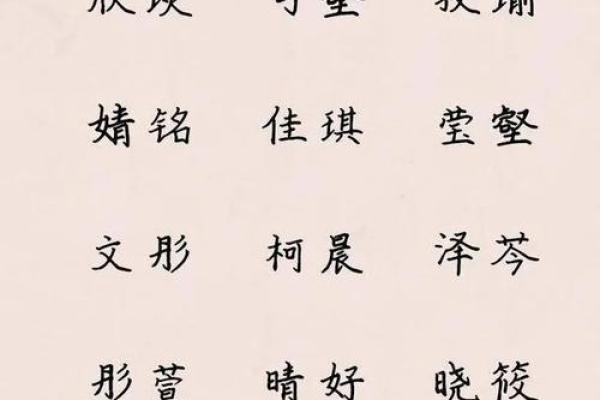 欣 瑜
婧铭 佳琪 莹壑
文彤 柯晨 泽芩
彤萱 晴好 晓筱